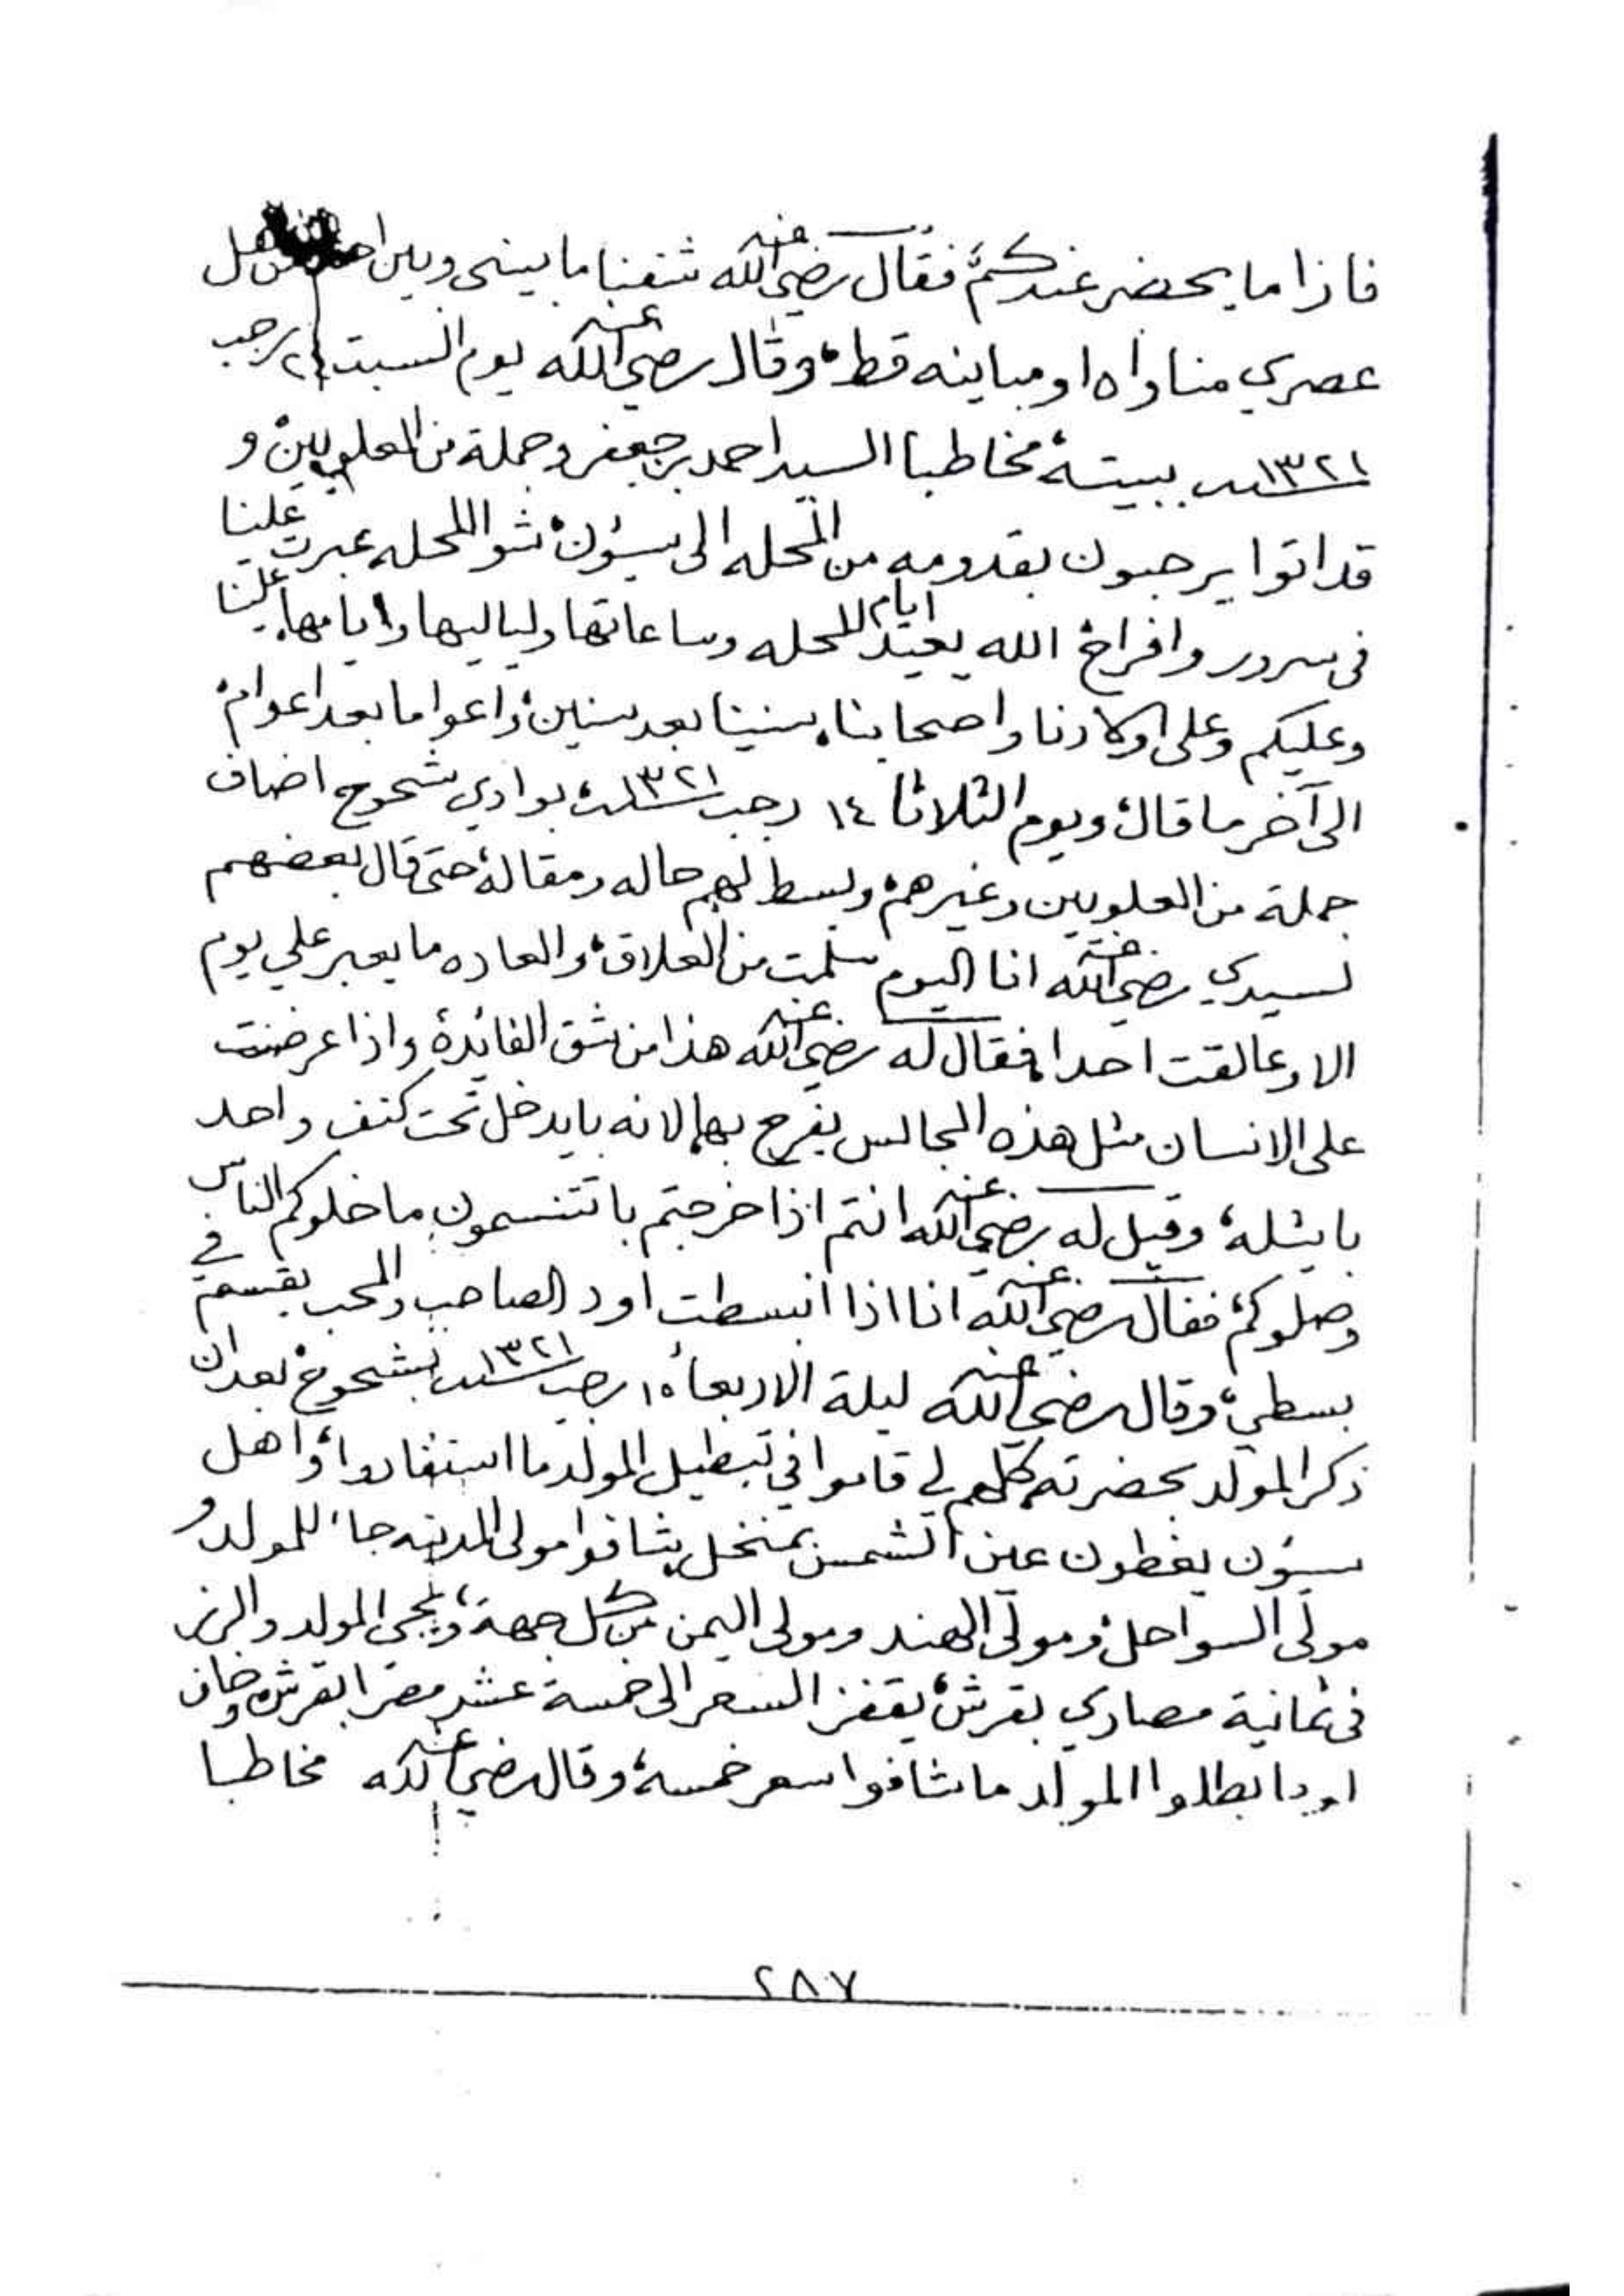 فاذا ما يحضر عندكم فقال رضي الله عنه شفنا ما بيني وبين احد من اهل
عصري مناواه او مباينه قط، وقال رضي الله عنه يوم السبت رجب
سنة ١٣٢١ ببيته مخاطبا السيد احمد بن جعفر وجملة من العلويين و
قد اتوا يرحبون بقدومه من المحله الى سيؤن شو المحله عبرت علينا
في سرور وافراح الله يعيد ايام المحله وساعاتها ولياليها وايامها علينا
وعليكم وعلى اولادنا واصحابنا، سنينا بعد سنين واعواما بعد اعوام
الى آخر ما قال، ويوم الثلاثا ١٤ رجب سنة ١٣٢١ بوادي شحوح اضاف
جملة من العلويين وغيرهم، وبسط لهم حاله ومقاله، حتى قال بعضهم
لسيدي رضي الله عنه انا اليوم سلمت من العلاق، والعاده ما يعبر علي يوم
الا وعالقت احدا، فقال له رضي الله عنه هذا من شق الفائدة، واذا عرضت
على الانسان مثل هذه المجالس يفرح بها لانه بايدخل تحت كنف واحد
بايشله، وقيل له رضي الله عنه انتم اذا خرجتم باتتنسمون ما خلوكم الناس
وصلوكم، فقال رضي الله عنه انا اذا انبسطت اود الصاحب والمحب يقسم في
بسطي، وقال رضي الله عنه ليلة الاربعاء ١٥ رجب سنة ١٣٢١ بشحوح بعد ان
ذكر المولد بحضرته كلهم لي قاموا في تبطيل المولد ما استفادوا، واهل
سيؤن يغطون عين الشمس بمنخل يشافوا مولى المدينه جاء للمولد و
مولى السواحل ومولى الهند ومولى اليمن من كل جهة، ويجي المولد والرز
في ثمانية مصاري بقرش، يقفز السعر الى خمسة عشر مصرا بقرش، وخاف
بطلوا المولد ما شافوا سعر خمسه، وقال رضي الله عنه مخاطبا
٢٨٧